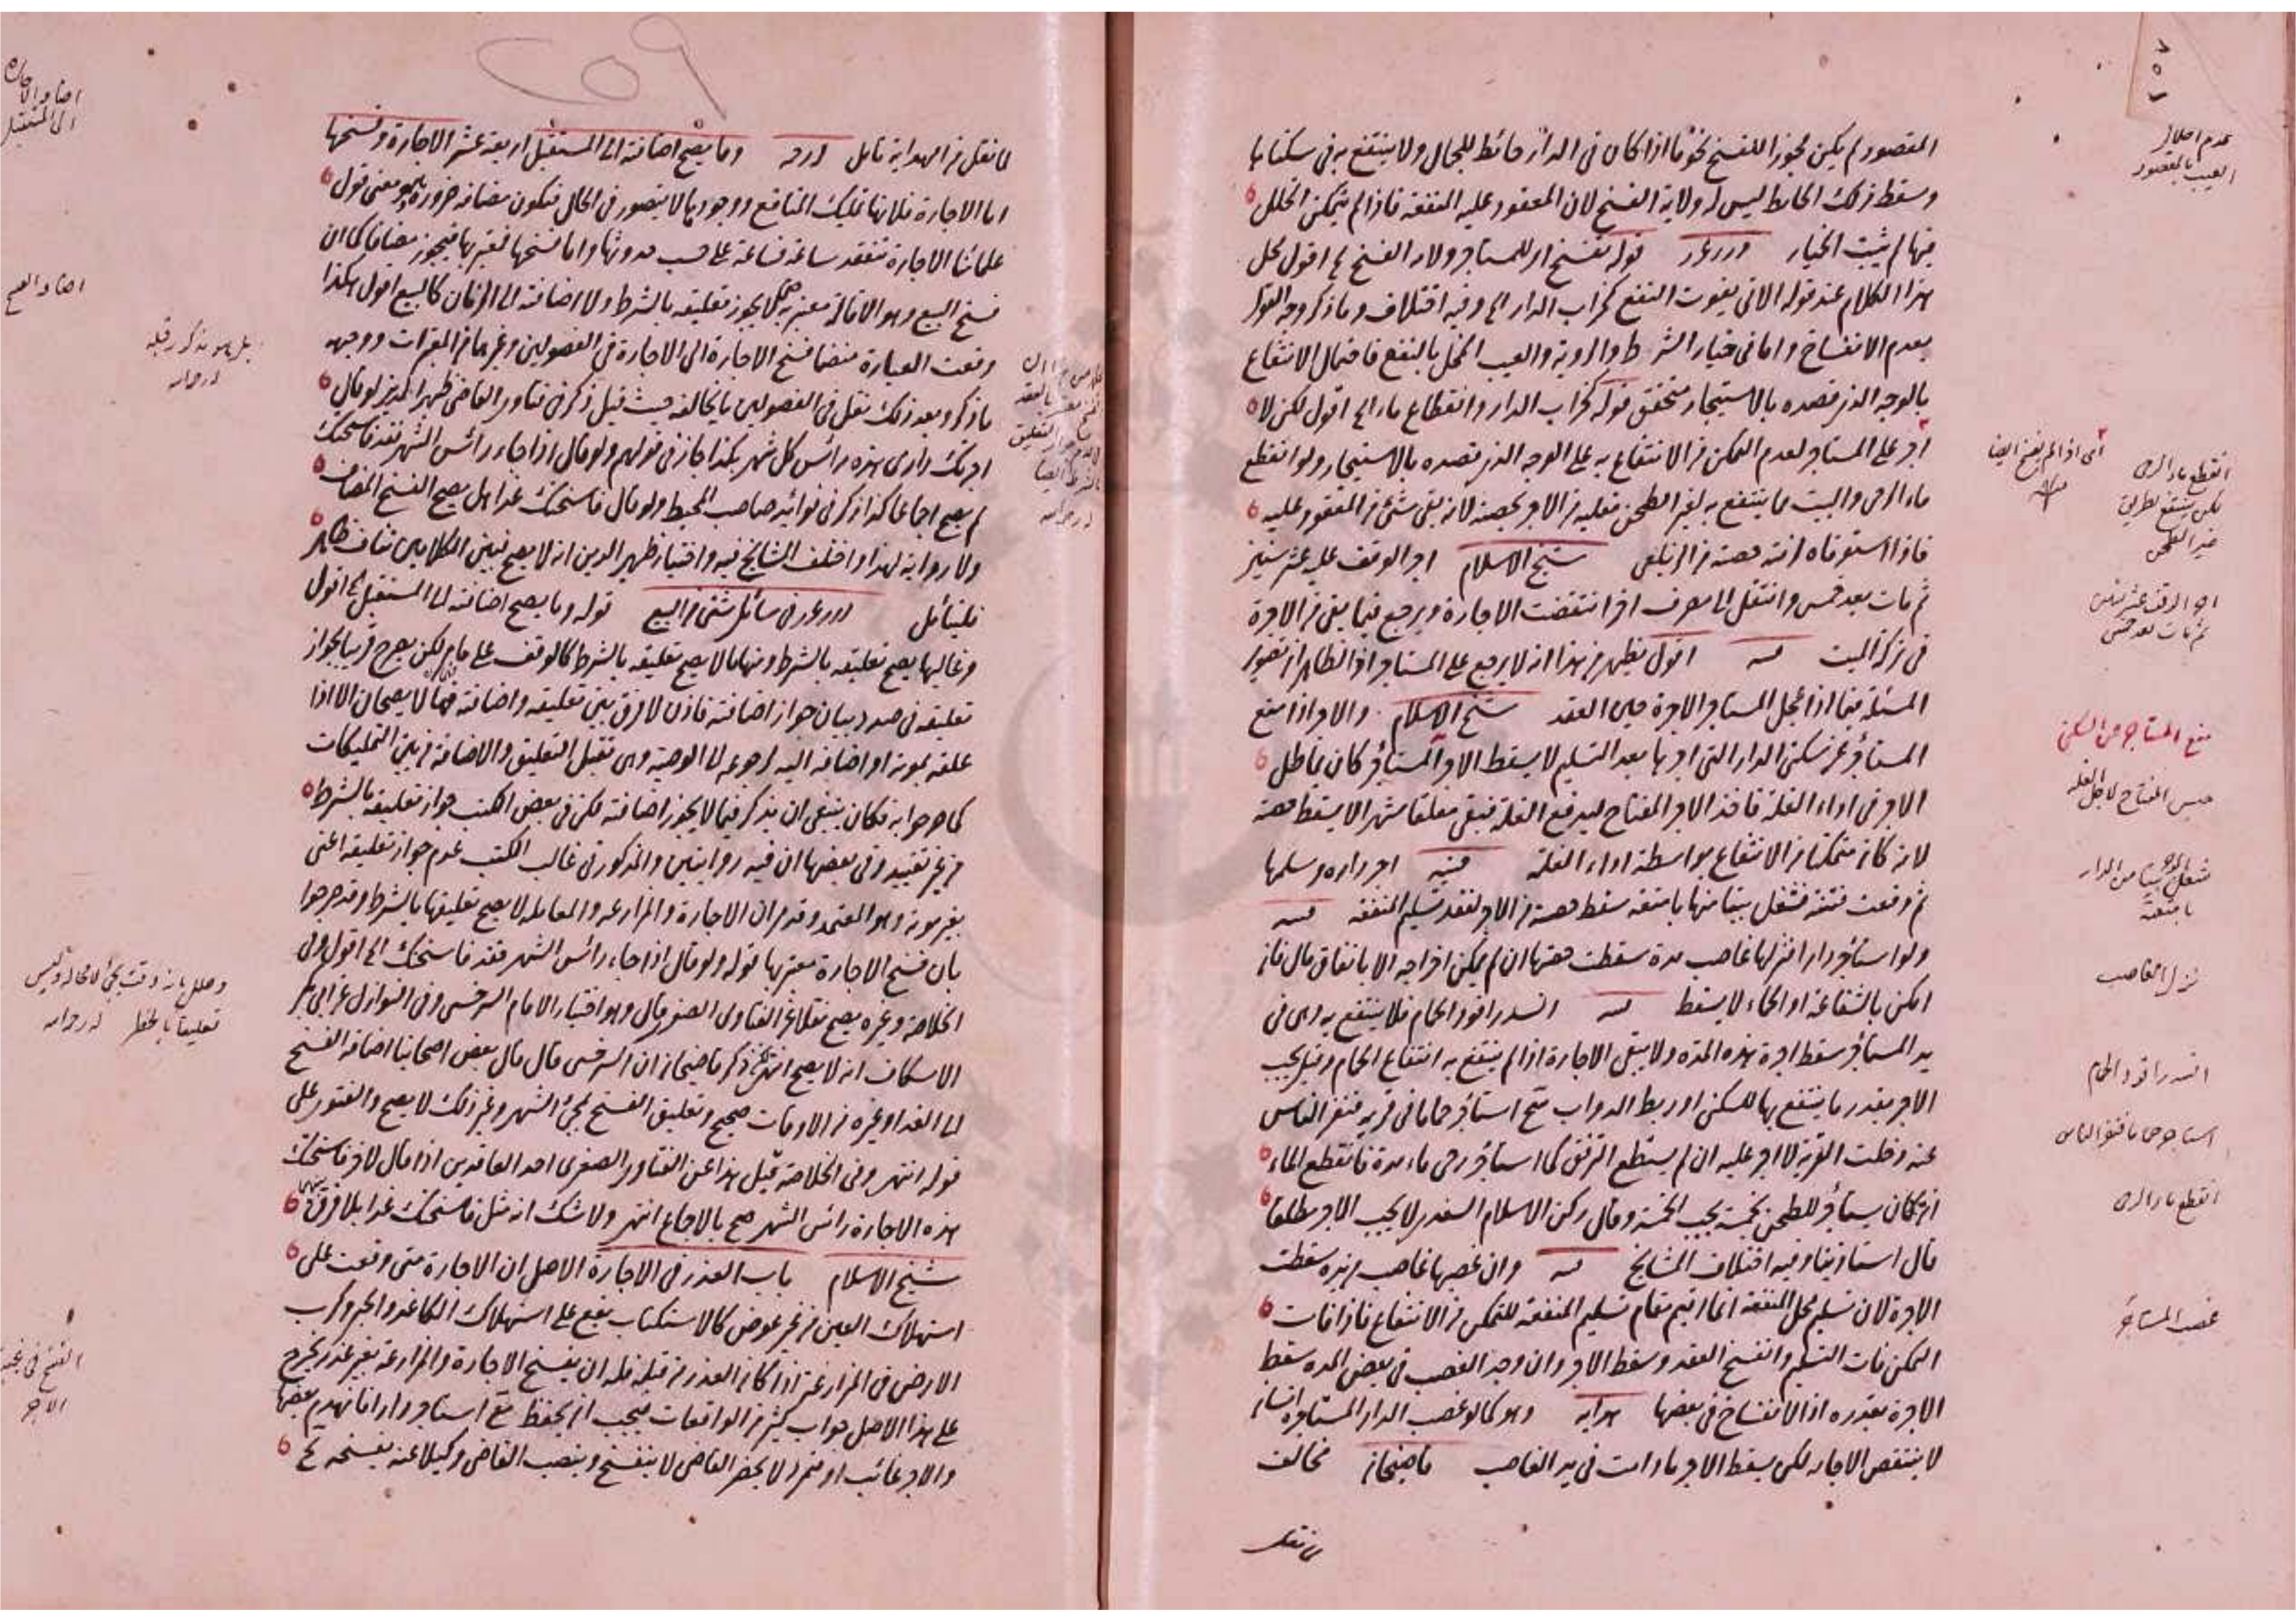 المقصود لم يكن مجوزا للفسخ نحو ما اذا كان فى الدار حائط للجمال ولا ينتفع به فى سكناها
وسقط ذلك الحايط ليس له ولاية الفسخ لان المعقود عليه المنفعة فاذا لم يتمكن الخلل
فيها لم يثبت الخيار درر غرر قوله تفسخ اى للمستاجر ولاية الفسخ الخ اقول محل
هذا الكلام عند قوله الاتى يفوت النفع كخراب الدار الخ وفيه اختلاف وما ذكر وجه القول
بعدم الانفساخ واما فى خيار الشرط والروية والعيب المخل بالنفع فاحتمال الانتفاع
بالوجه الذى قصده بالاستيجار متحقق قوله كخراب الدار وانقطاع ماء الخ اقول لكن لا
اجر على المستاجر لعدم التمكن من الانتفاع به على الوجه الذى قصده بالاستيجار ولو انقطع
ماء الرحى والبيت مما ينتفع به لغير الطحن فعليه من الاجر بحصته لانه بقى شئ من المعقود عليه
فاذا استوفاه لزمته حصته من الزيلعى شيخ الاسلام اجر الوقف عليه عشر سنين
ثم مات بعد خمس وانتقل الى مصرف اخر انتقضت الاجارة ويرجع فيما بقى من الاجرة
فى تركة الميت اقول يظهر من هذا انه لا يرجع على المستاجر اذ الظاهر ان تصوير
المسئلة فيما اذا عجل المستاجر الاجرة حين العقد شيخ الاسلام والاجر اذا منع
المستاجر عن سكنى الدار التى اجرها بعد التسليم لا يسقط الاجر المستاجر كان يماطل
الاجر فى اداء الغلة فاخذ الاجر المفتاح ليدفع الغلة فبقى مغلقا شهرا لا يسقط حصته
لانه كان متمكنا من الانتفاع بواسطة اداء الغلة قنيه اجر داره وسلمها
ثم وقعت فتنة فشغل بيتا منها بامتعته سقط حصته من الاجر لفقد تسليم المنفعة
ولو استاجر دارا فنزلها غاصب مدة سقطت حصتها ان لم يمكن اخراجه الا بانفاق مال فان
امكن بالشفاعة او الحماء لا يسقط انسد راقود الحمام فلا ينتفع به وهى فى
يد المستاجر سقط اجرة هذه المدة ولا يبقى الاجارة اذا لم ينتفع به انتفاع الحمام وقيل يجب
الاجر بقدر ما ينتفع بها للسكنى او ربط الدواب استاجر حماما فى قرية فنفر الناس
عنه وخلت القرية لا اجر عليه ان لم يستطع الترفق كما استاجر رحى ماء مدة فانقطع الماء
ان كان يستاجر للطحن بخمسة يجب الخمسة وقال ركن الاسلام السغدى لا يجب الاجر مطلقا
قال استاذينا وفيه اختلاف المشايخ وان غصبها غاصب من يده سقطت
الاجرة لان تسليم محل المنفعة انما اقيم مقام تسليم المنفعة للتمكن من الانتفاع فاذا فات
التمكن فات التسليم وانفسخ العقد وسقط الاجر وان وجد الغصب فى بعض المدة سقط
الاجرة بقدره اذ الانفساخ فى بعضها هدايه وهو كما لو غصب الدار المستاجرة انسان
لا ينتقض الاجارة لكن يسقط الاجر ما دامت فى يد الغاصب قاضيخان مخالف
لما نقل
عدم اخلال
العيب بالمقصود
اى اذا لم يفسخ ايضا
انقطع ماء الرحى
لكن ينتفع بطريق
غير الطحن
اجر الوقف عشر سنين
ثم مات بعد خمس
منع المستاجر من السكنى
حبس المفتاح لاجل الغلة
شغل الاجر بيتا من الدار
بامتعته
نزلها غاصب
انسد راقود الحمام
استاجر حماما فنفر الناس
انقطع ماء الرحى
غصب المستاجر
لما نقل من الهداية تامل درر وما يصح اضافته الى المستقبل اربعة عشر الاجارة وفسخها
اما الاجارة فلانها تمليك المنافع ووجودها لا يتصور فى الحال فتكون مضافة ضرورة وهو معنى قول
علمائنا الاجارة تنعقد ساعة فساعة على حسب حدوثها واما فسخها فمعتبر بها فيجوز مضافا كما ان
فسخ البيع وهو الاقالة معتبر به حتى لا يجوز تعليقه بالشرط ولا اضافته الى الزمان كالبيع اقول هكذا
وقعت العبارة منضما فسخ الاجارة الى الاجارة فى الفصولين وغيرهما من المعتبرات ووجهه
ما ذكر وبعد ذلك نقل فى الفصولين ما يخالفه حيث قيل ذكر فى فتاوى القاضى ظهير الدين لو قال
اجرتك دارى هذه راس كل شهر بكذا جاز فى قولهم ولو قال اذا جاء رائس الشهر فقد فاسختك
لم يصح اجماعا كذا ذكر فى فوائد صاحب المحيط ولو قال فاسختك غدا هل يصح الفسخ المضاف
ولا رواية لهذا واختلف المشايخ فيه واختيار ظهير الدين انه لا يصح فبين الكلامين تناف ظاهر
فليتامل درر غرر فى مسائل شتى من البيع قوله وما يصح اضافته الى المستقبل الخ اقول
وغالبها يصح تعليقه بالشرط ومنها ما لا يصح تعليقه بالشرط كالوقف على ما مر لكن يصرح قريبا بجواز
تعليقه فى صدد بيان جواز اضافته فاذن لا فرق بين تعليقه واضافته فانهما لا يصحان الا اذا
علقه بموته او اضافه اليه لرجوعه الى الوصية وهى تقبل التعليق والاضافة من بين التمليكات
كما صرحوا به فكان ينبغى ان يذكر فيما لا يجوز اضافته لكن فى بعض الكتب جواز تعليقه بالشرط
من غير تقييد وفى بعضها ان فيه روايتين والمذكور فى غالب الكتب عدم جواز تعليقه اعنى
بغير موته وهو المعتمد وقد مر ان الاجارة والمزارعة والمعاملة لا يصح تعليقها بالشرط وقد صرحوا
بان فسخ الاجارة معتبر بها قوله ولو قال اذا جاء رائس الشهر فقد فاسختك الخ اقول وفى
الخلاصة وغيره يصح نقلا عن الفتاوى الصغرى قال وهو اختيار الامام السرخسى وفى النوازل عن ابى بكر
الاسكاف انه لا يصح انتهى ذكر قاضيخان ان السرخسى قال قال بعض اصحابنا اضافة الفسخ
الى الغد او غيره من الاوقات صحيح وتعليق الفسخ لمجئ الشهر وغير ذلك لا يصح والفتوى على
قوله انتهى وفى الخلاصة قبيل هذا عن الفتاوى الصغرى احد العاقدين اذا قال لاخر فاسختك
هذه الاجارة رائس الشهر صح بالاجماع انتهى ولا شك انه مثل فاسختك غدا بلا فرق بينهما
شيخ الاسلام باب العذر فى الاجارة الاصل ان الاجارة متى وقعت على
استهلاك العين من غير عوض كالاستكتاب يقع على استهلاك الكاغد والحبر وكرب
الارض فى المزارعة اذا كان العذر من قبله فله ان يفسخ الاجارة والمزارعة بغير عذر يخرج
على هذا الاصل جواب كثير من الواقعات فيجب ان يحفظ استاجر دارا فانهدم بعضها
والاجر غائب او متمرد لا يحضر القاضى لا ينفسخ وينصب القاضى وكيلا عنه يفسخه
اضافة الاجارة
الى المستقبل
اضافة الفسخ
بل هو مذكور قبله
وعلل بانه وقت يجئ لا محالة وليس
تعليقا بالخطر
الفسخ فى غيبة
الاجر